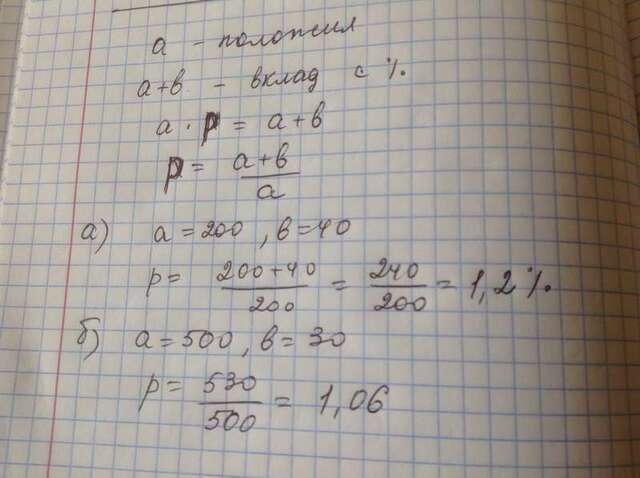 a - положил
a+в - вклад с %.
a · p = a+в
p = a+в / a
а) a = 200, в = 40
p = 200+40 / 200 = 240 / 200 = 1,2%.
б) a = 500, в = 30
p = 530 / 500 = 1,06